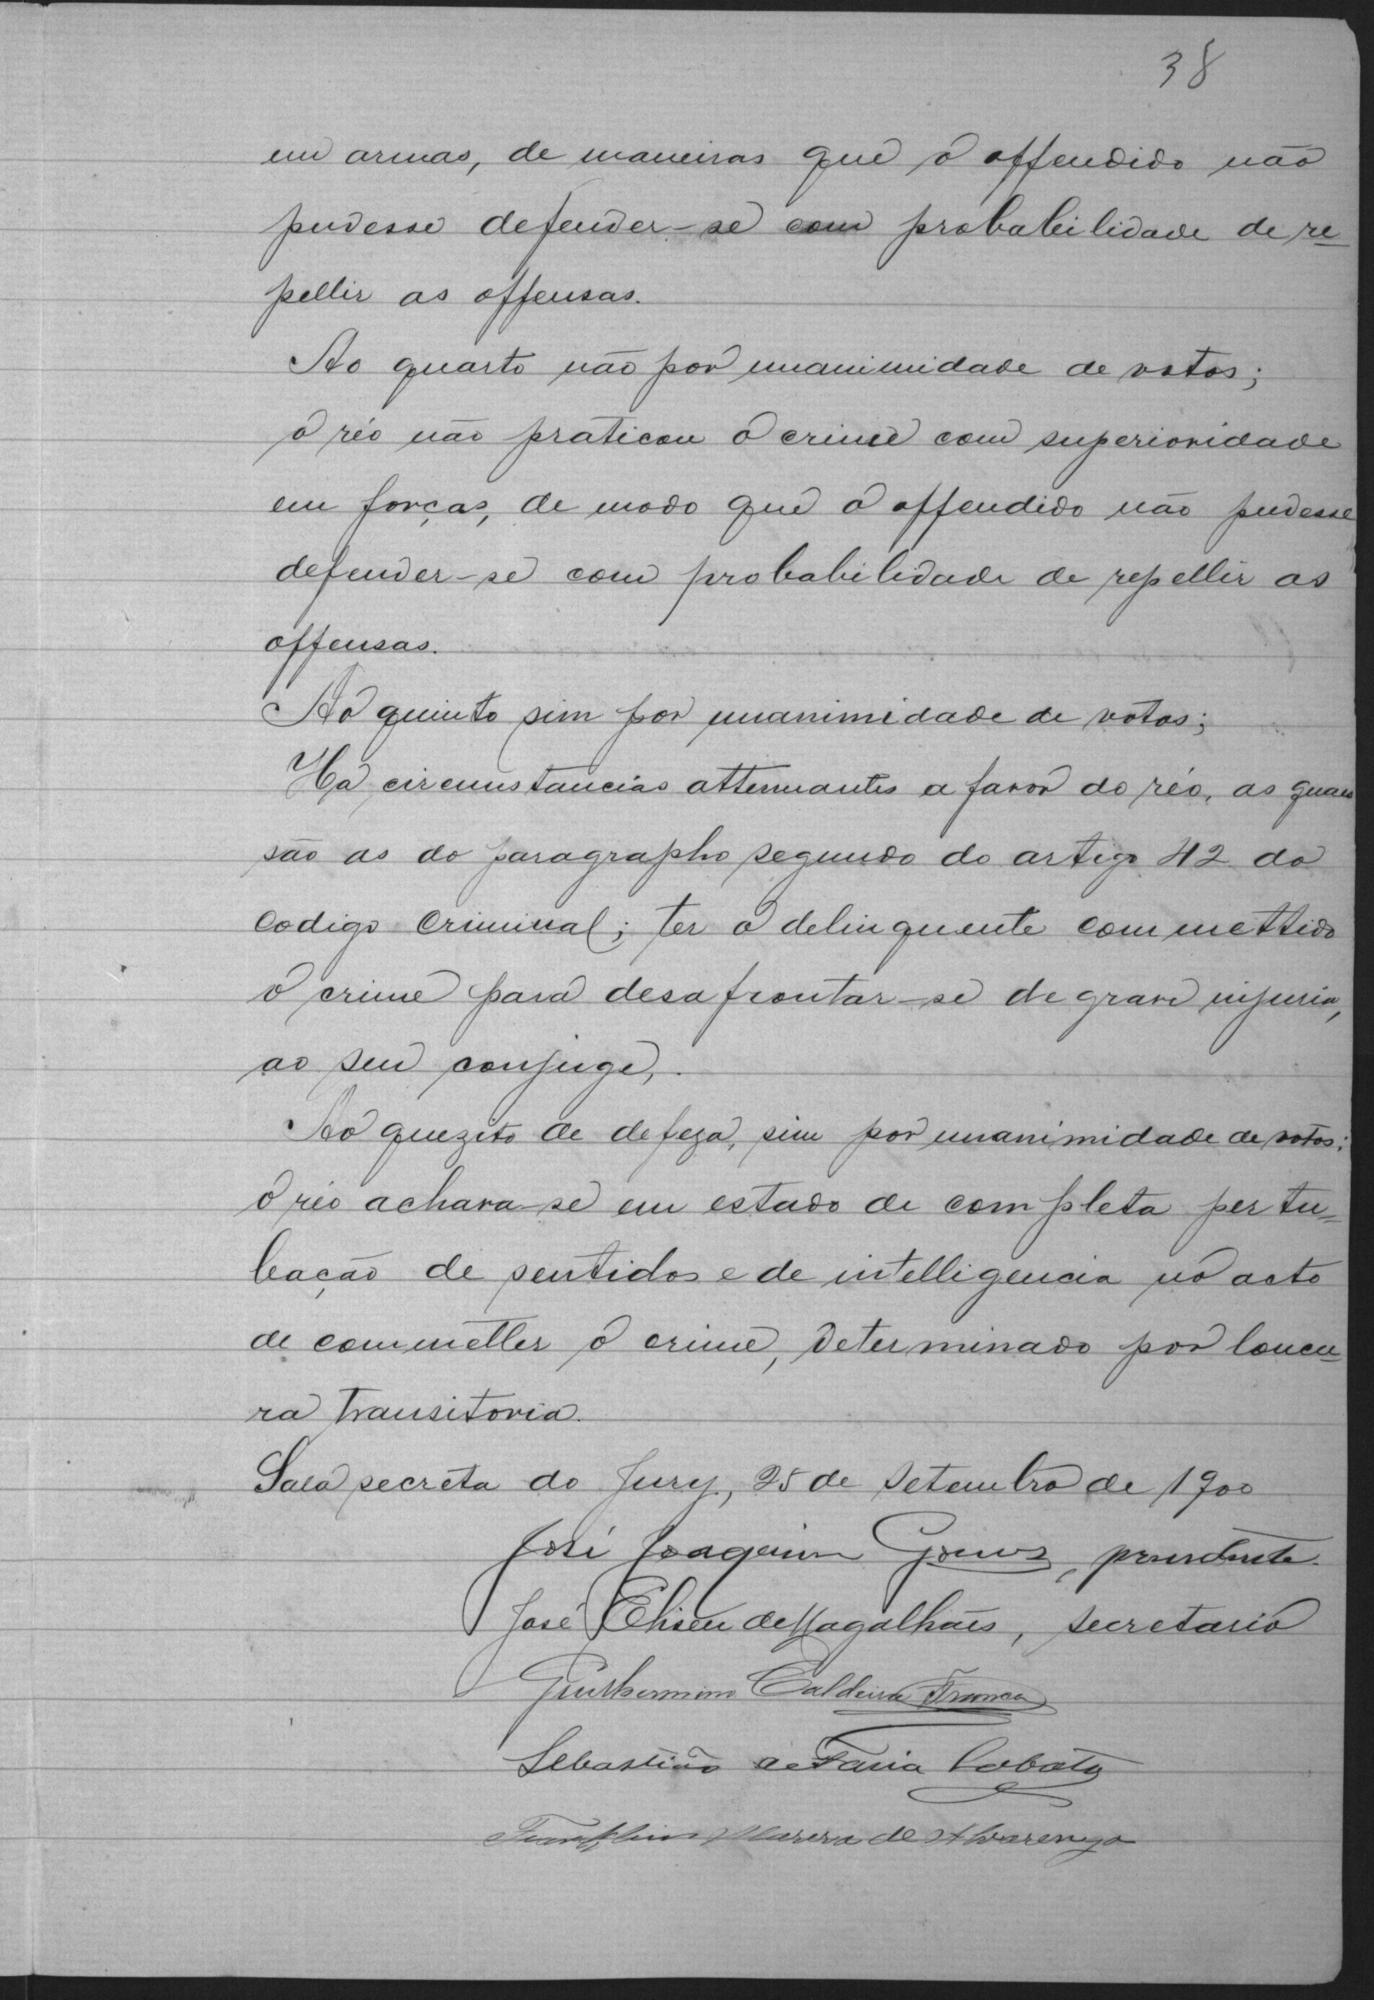 38
em armas, de maneiras que o offendido não
pudesse defender-se com probabilidade de re-
pellir as offensas.
Ao quarto não por unanimidade de votos;
o réo não praticou o crime com superioridade
em forças, de modo que o offendido não pudesse
defender-se com probabilidade de repellir as
offensas.
Ao quinto sim por unanimidade de votos;
Ha circumstancias attenuantes a favor do réo, as quaes
são as do paragrapho segundo do artigo 42 do
codigo criminal; ter o delinquente commettido
o crime para desafrontar-se de grave injuria,
ao seu conjuge,.
Ao quezito de defeza, sim por unanimidade de votos:
o réo achava-se em estado de completa pertu-
bação de sentidos e de intelligencia no acto
de cometter o crime, determinado por loucu-
ra transitoria.
Sala secreta do Jury, 25 de Setembro de 1900
José Joaquim Gomes, presidente.
José Eliseu de Magalhães, secretario
Guilhermino Caldeira Franca
Sebastião de Faria Lobato
Franklin de Alvarenga